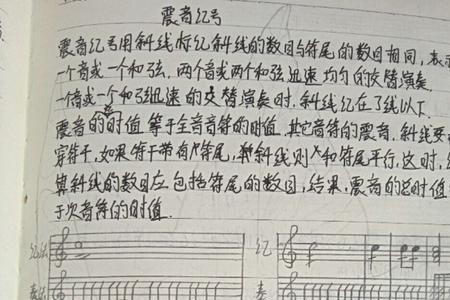 震音记号
震音记号用斜线标记斜线的数目与符尾的数目相同,表示
一个音或一个和弦,两个音或两个和弦迅速均匀的交替演奏.
一个音或一个和弦迅速的交替演奏时,斜线记在了线以下.
震音的时值等于全音音符的时值.其它音符的震音,斜线要
穿符干,如果符干带有符尾,斜线则和符尾平行,这时,
算斜线的数目应包括符尾的数目,结果,震音的总时值
于次音符的时值.
记法 记
奏法 奏